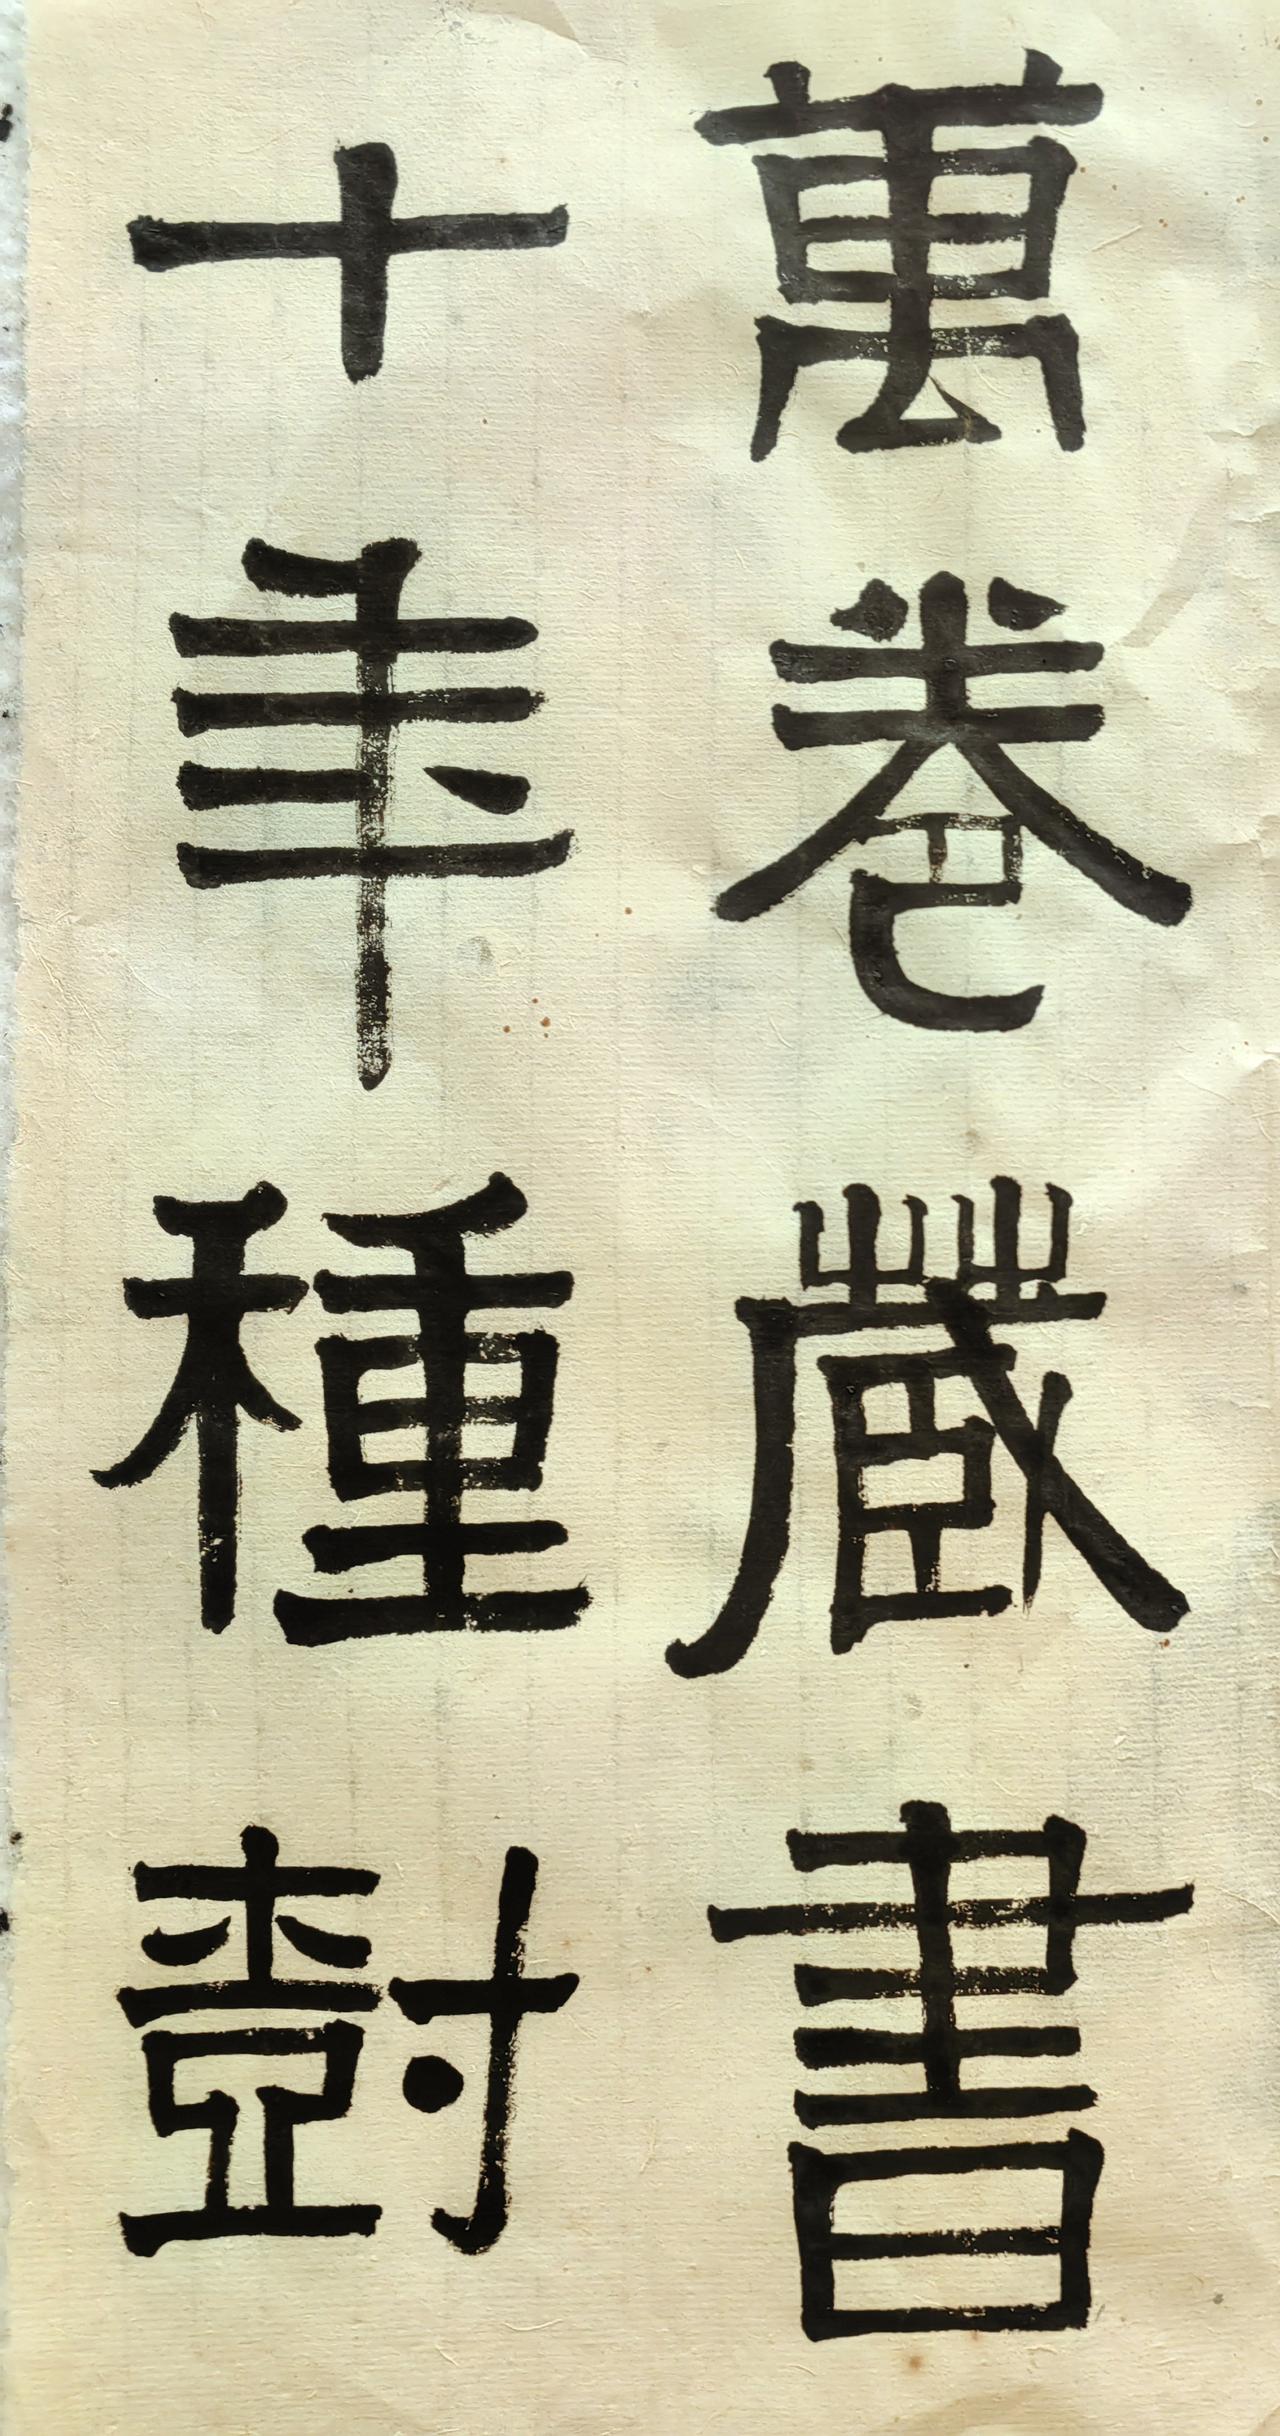 萬卷藏書
十年種樹